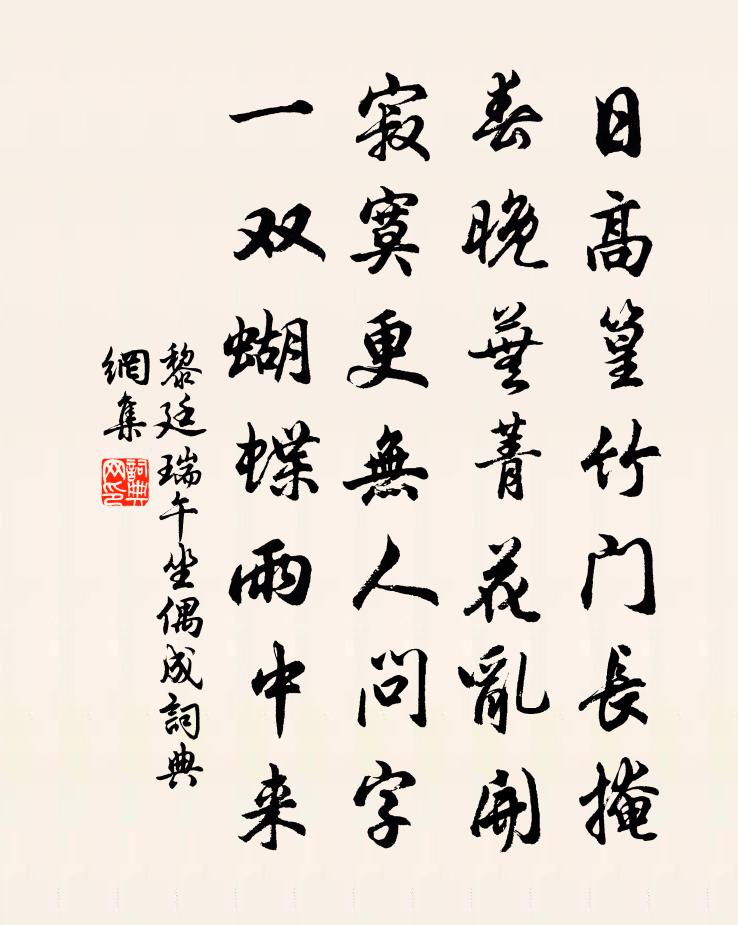 日高篁竹门長掩
春晚蕪菁花亂開
寂寞更無人問字
一双蝴蝶雨中来
黎廷瑞午坐偶成詞典
網集
詞典网印